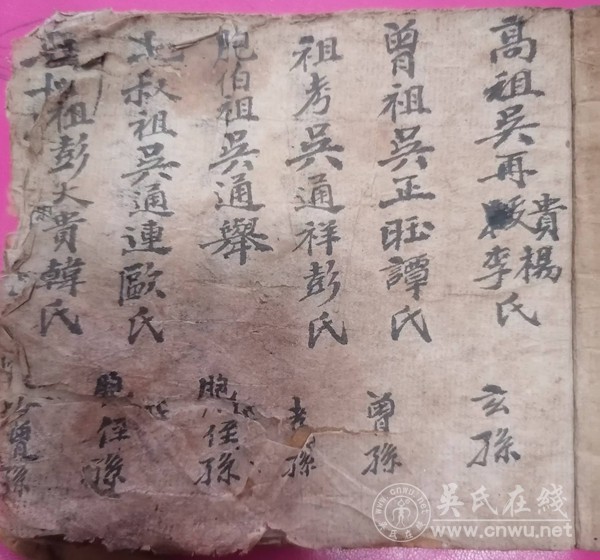 高祖吳再貴楊李氏 玄孫
曾祖吳正旺譚氏 曾孫
祖考吳通祥彭氏 孫
胞伯祖吳通舉 胞侄孫
叔祖吳通連歐氏 胞侄孫
祖彭大貴韓氏 曾孫
吳氏在線
www.cnwu.net